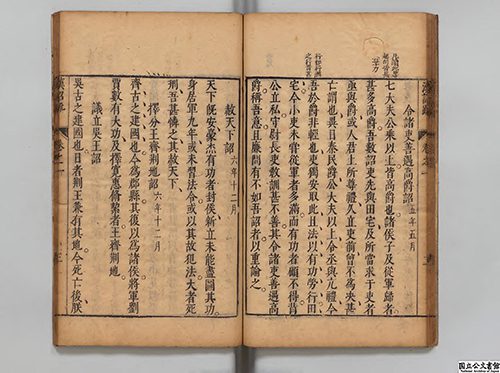 令諸吏善遇高爵詔 五年五月
七大夫公乘以上皆高爵也諸侯子及從軍歸者
甚多高爵吾數詔吏先與田宅及所當求于吏者
亟與爵或人君上所尊禮久立吏前曾不爲決甚
亡謂也異日秦民爵公大夫以上令丞與亢禮今
吾於爵非輕也吏獨安取此且法以有功勞行田
宅今小吏未嘗從軍者多滿而有功者顧不得背
公立私守尉長吏教訓甚不善其令諸吏善遇高
爵稱吾意且廉問有不如吾詔者以重論之
赦天下詔 六年十二月
天下旣安豪傑有功者封侯新立未能盡圖其功
身居軍九年或未習法令或以其故犯法大者死
刑吾甚憐之其赦天下
擇分王齊荆地詔 六年十二月
齊古之建國也今爲郡縣其復以爲諸侯將軍劉
賈數有大功及擇寬惠脩絜者王齊荆地
議立吳王詔
吳古之建國也日者荆王兼有其地今死亡後朕
卷之一
國立公文書館
National Archives of Japan